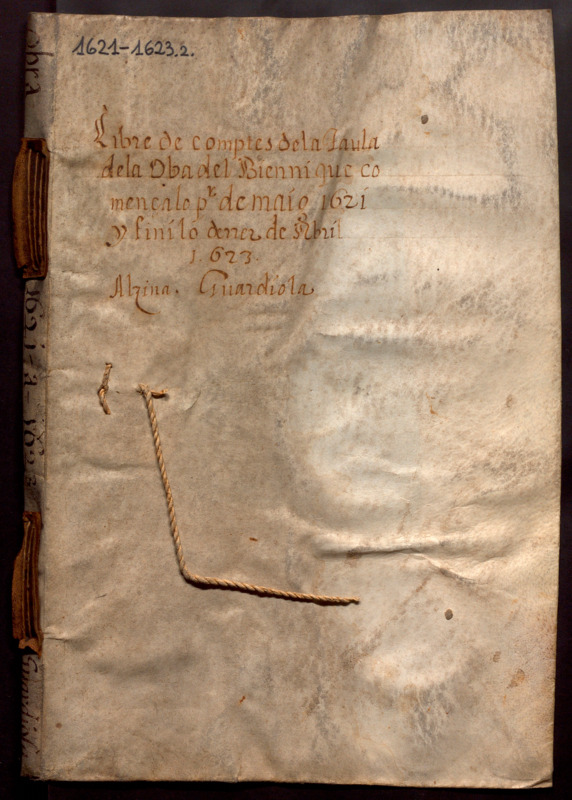 1621-1623.2.
Libre de comptes dela Taula
dela Oba del Bienni que co
mençalo pr de maio 1621
y finilo derrer de Abril
1623.
Alzina. Guardiola
obra
1621-a-1623